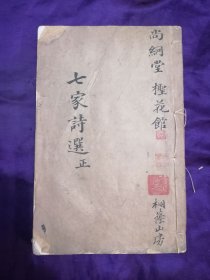 尚絅堂 櫻花館
七家詩選 正
山房